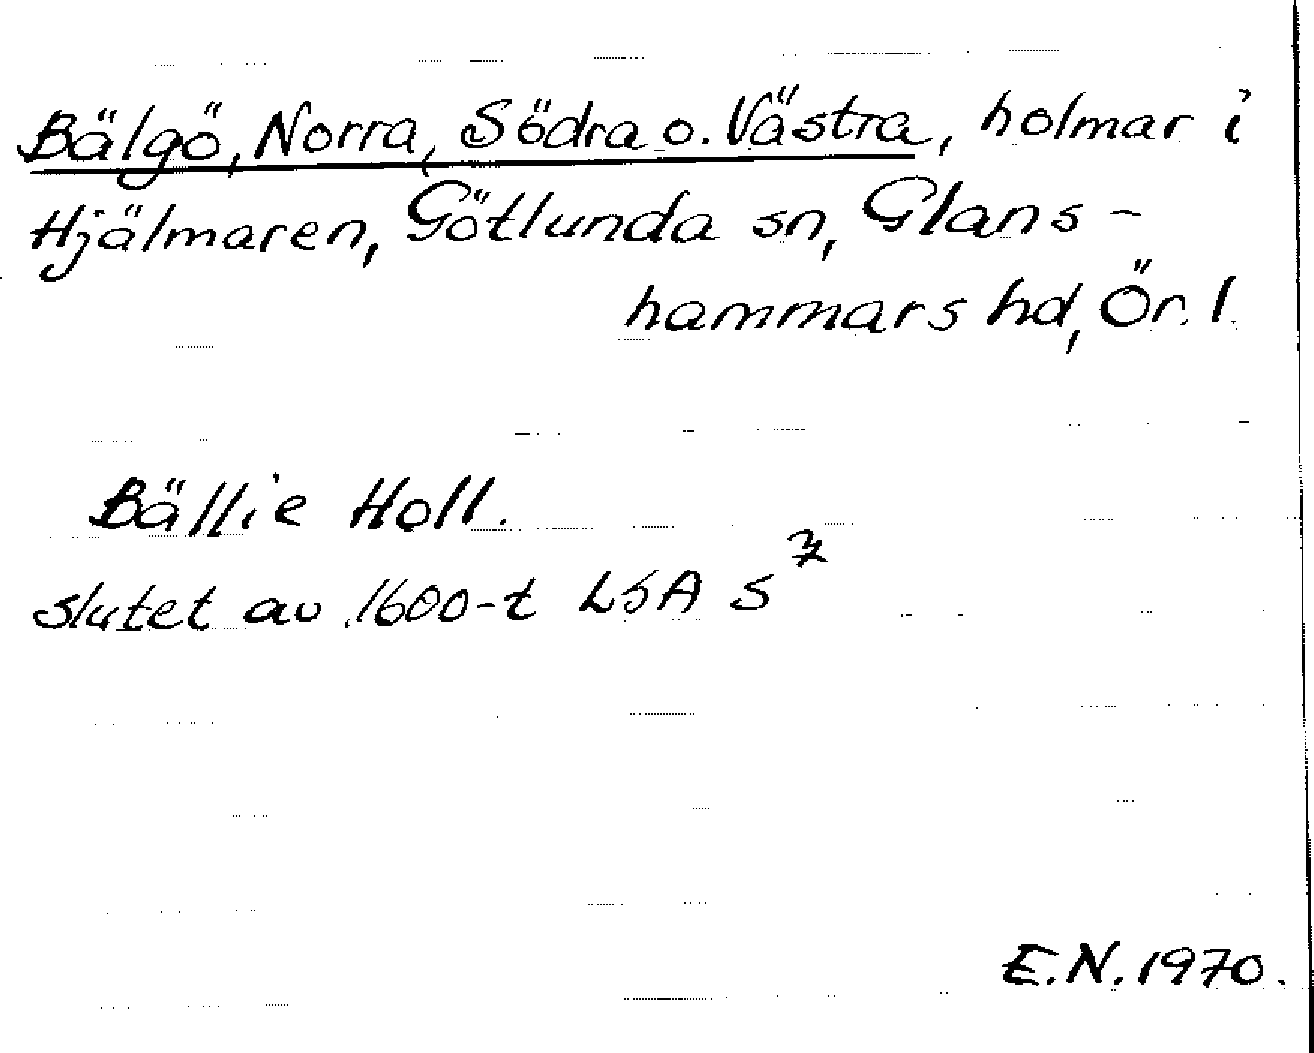 Bälgö, Norra, Södra o. Västra, holmar i
Hjälmaren, Götlunda sn, Glans-
hammars hd, Ör. l.
Bällie Holl.
slutet av 1600-t LSA S 7
E.N. 1970.